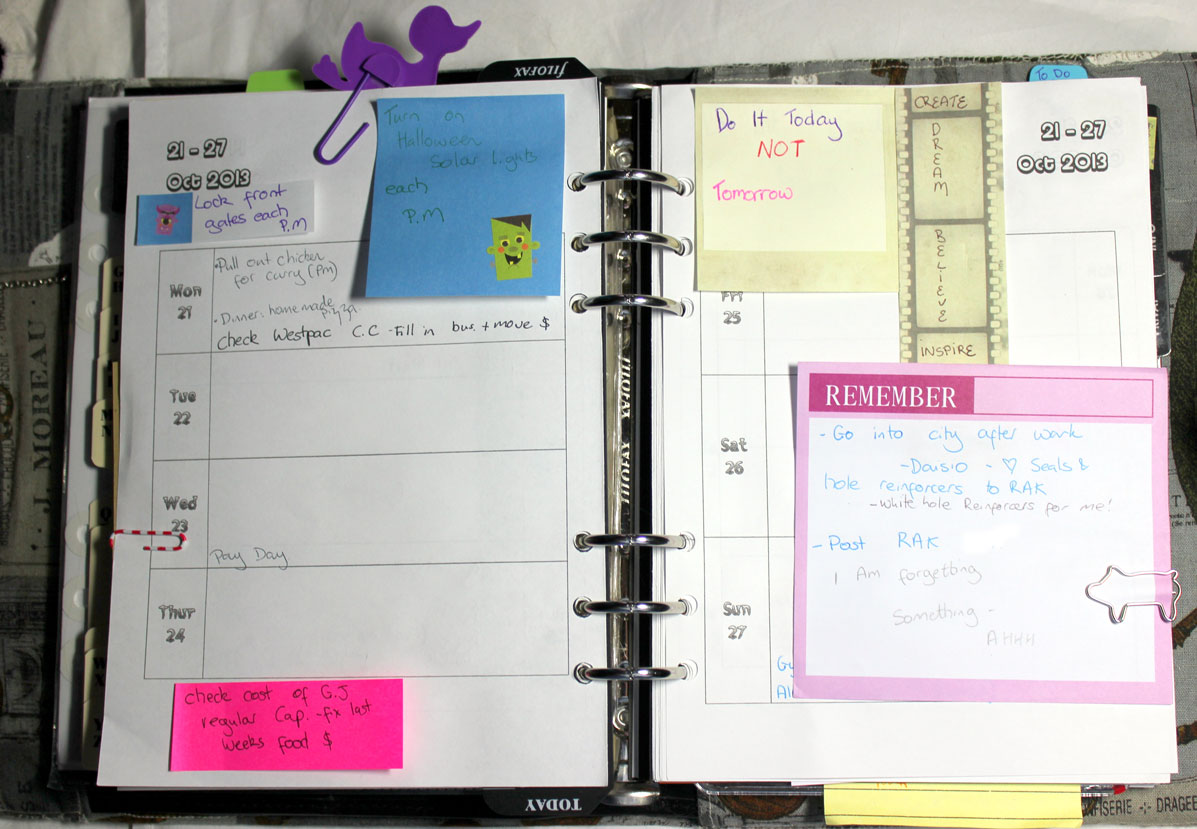 fILOFAX
To Do
21 - 27
Oct 2013
Lock front
gates each
P.M
Turn on
Halloween
Solar lights
each
P.M
Mon
21
• Pull out chicken
for curry (Pm)
• Dinner: homemade
pizza
check Westpac C.C - Fill in bus. + move $
Tue
22
Wed
23
Pay Day
Thur
24
check cost of G.J
regular Cap. - fix last
weeks food $
TODAY
Do It Today
NOT
Tomorrow
CREATE
DREAM
BELIEVE
INSPIRE
21 - 27
Oct 2013
Fri
25
Sat
26
Sun
27
REMEMBER
- Go into city after work
- Daiso - ♡ Seals &
hole reinforcers to RAK
- White hole Reinforcers for me!
- Post RAK
I Am forgetting
Something -
AHHH
J. MOREAU
FISERIE -:- DRAGEE